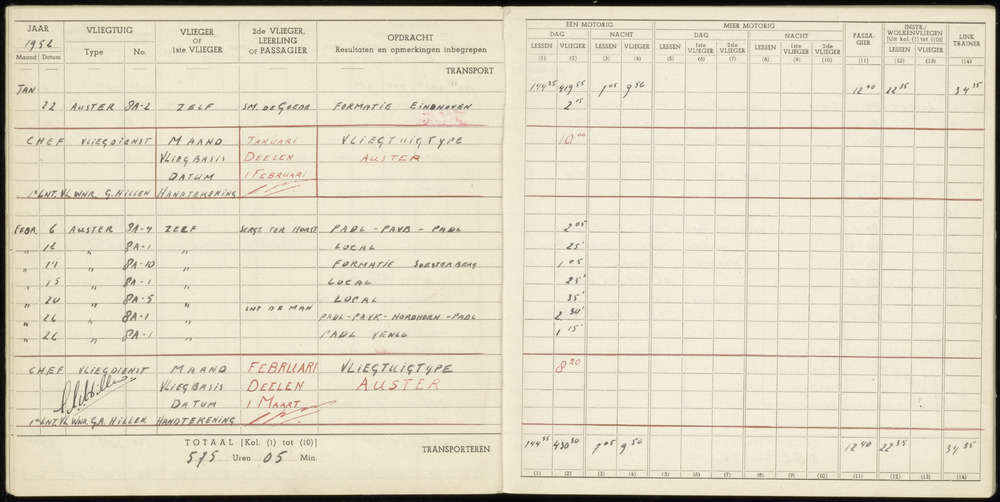 JAAR
1952
Maand Datum
VLIEGTUIG
Type No.
VLIEGER
OF
1ste VLIEGER
2de VLIEGER,
LEERLING
OF PASSAGIER
OPDRACHT
Resultaten en opmerkingen inbegrepen
TRANSPORT
JAN
22 AUSTER 8A-2 ZELF SM. DE GOEDE FORMATIE EINDHOVEN
CHEF VLIEGDIENST MAAND JANUARI VLIEGTUIGTYPE
VLIEGBASIS DEELEN AUSTER
DATUM 1 FEBRUARI
1e LNT. VL WNR. G. HILLEN HANDTEKENING
FEBR. 6 AUSTER 8A-4 ZELF SERGT TER HORST PADL - PAVB - PADL
" 12 " 8A-1 " LOCAL
" 14 " 8A-10 " FORMATIE SOESTERBERG
" 15 " 8A-1 " LOCAL
" 20 " 8A-5 " LOCAL
LNT DE MAN
" 26 " 8A-1 " PADL-PAVK-NORDHORN-PADL
" 26 " 8A-1 " PADL VENLO
CHEF VLIEGDIENST MAAND FEBRUARI VLIEGTUIGTYPE
VLIEGBASIS DEELEN AUSTER
DATUM 1 MAART
1e LNT. VL WNR. G.A. HILLEN HANDTEKENING
TOTAAL [Kol. (1) tot (10)]
575 Uren 05 Min.
TRANSPORTEREN
EEN MOTORIG
MEER MOTORIG
DAG NACHT DAG NACHT
LESSEN VLIEGER LESSEN VLIEGER LESSEN 1ste VLIEGER 2de VLIEGER LESSEN 1ste VLIEGER 2de VLIEGER
PASSA-
GIER
INSTR./
WOLKENVLIEGEN
[Uit kol. (1) tot (10)]
LESSEN VLIEGER
LINK
TRAINER
(1) (2) (3) (4) (5) (6) (7) (8) (9) (10) (11) (12) (13) (14)
144 35 419 55 1 05 9 50 12 40 22 35 34 35
2 15
10 00
2 05
25'
1 05
25'
35'
2 30'
1 15'
8 20
144 35 430 30 1 05 9 50 12 40 22 35 34 35
(1) (2) (3) (4) (5) (6) (7) (8) (9) (10) (11) (12) (13) (14)